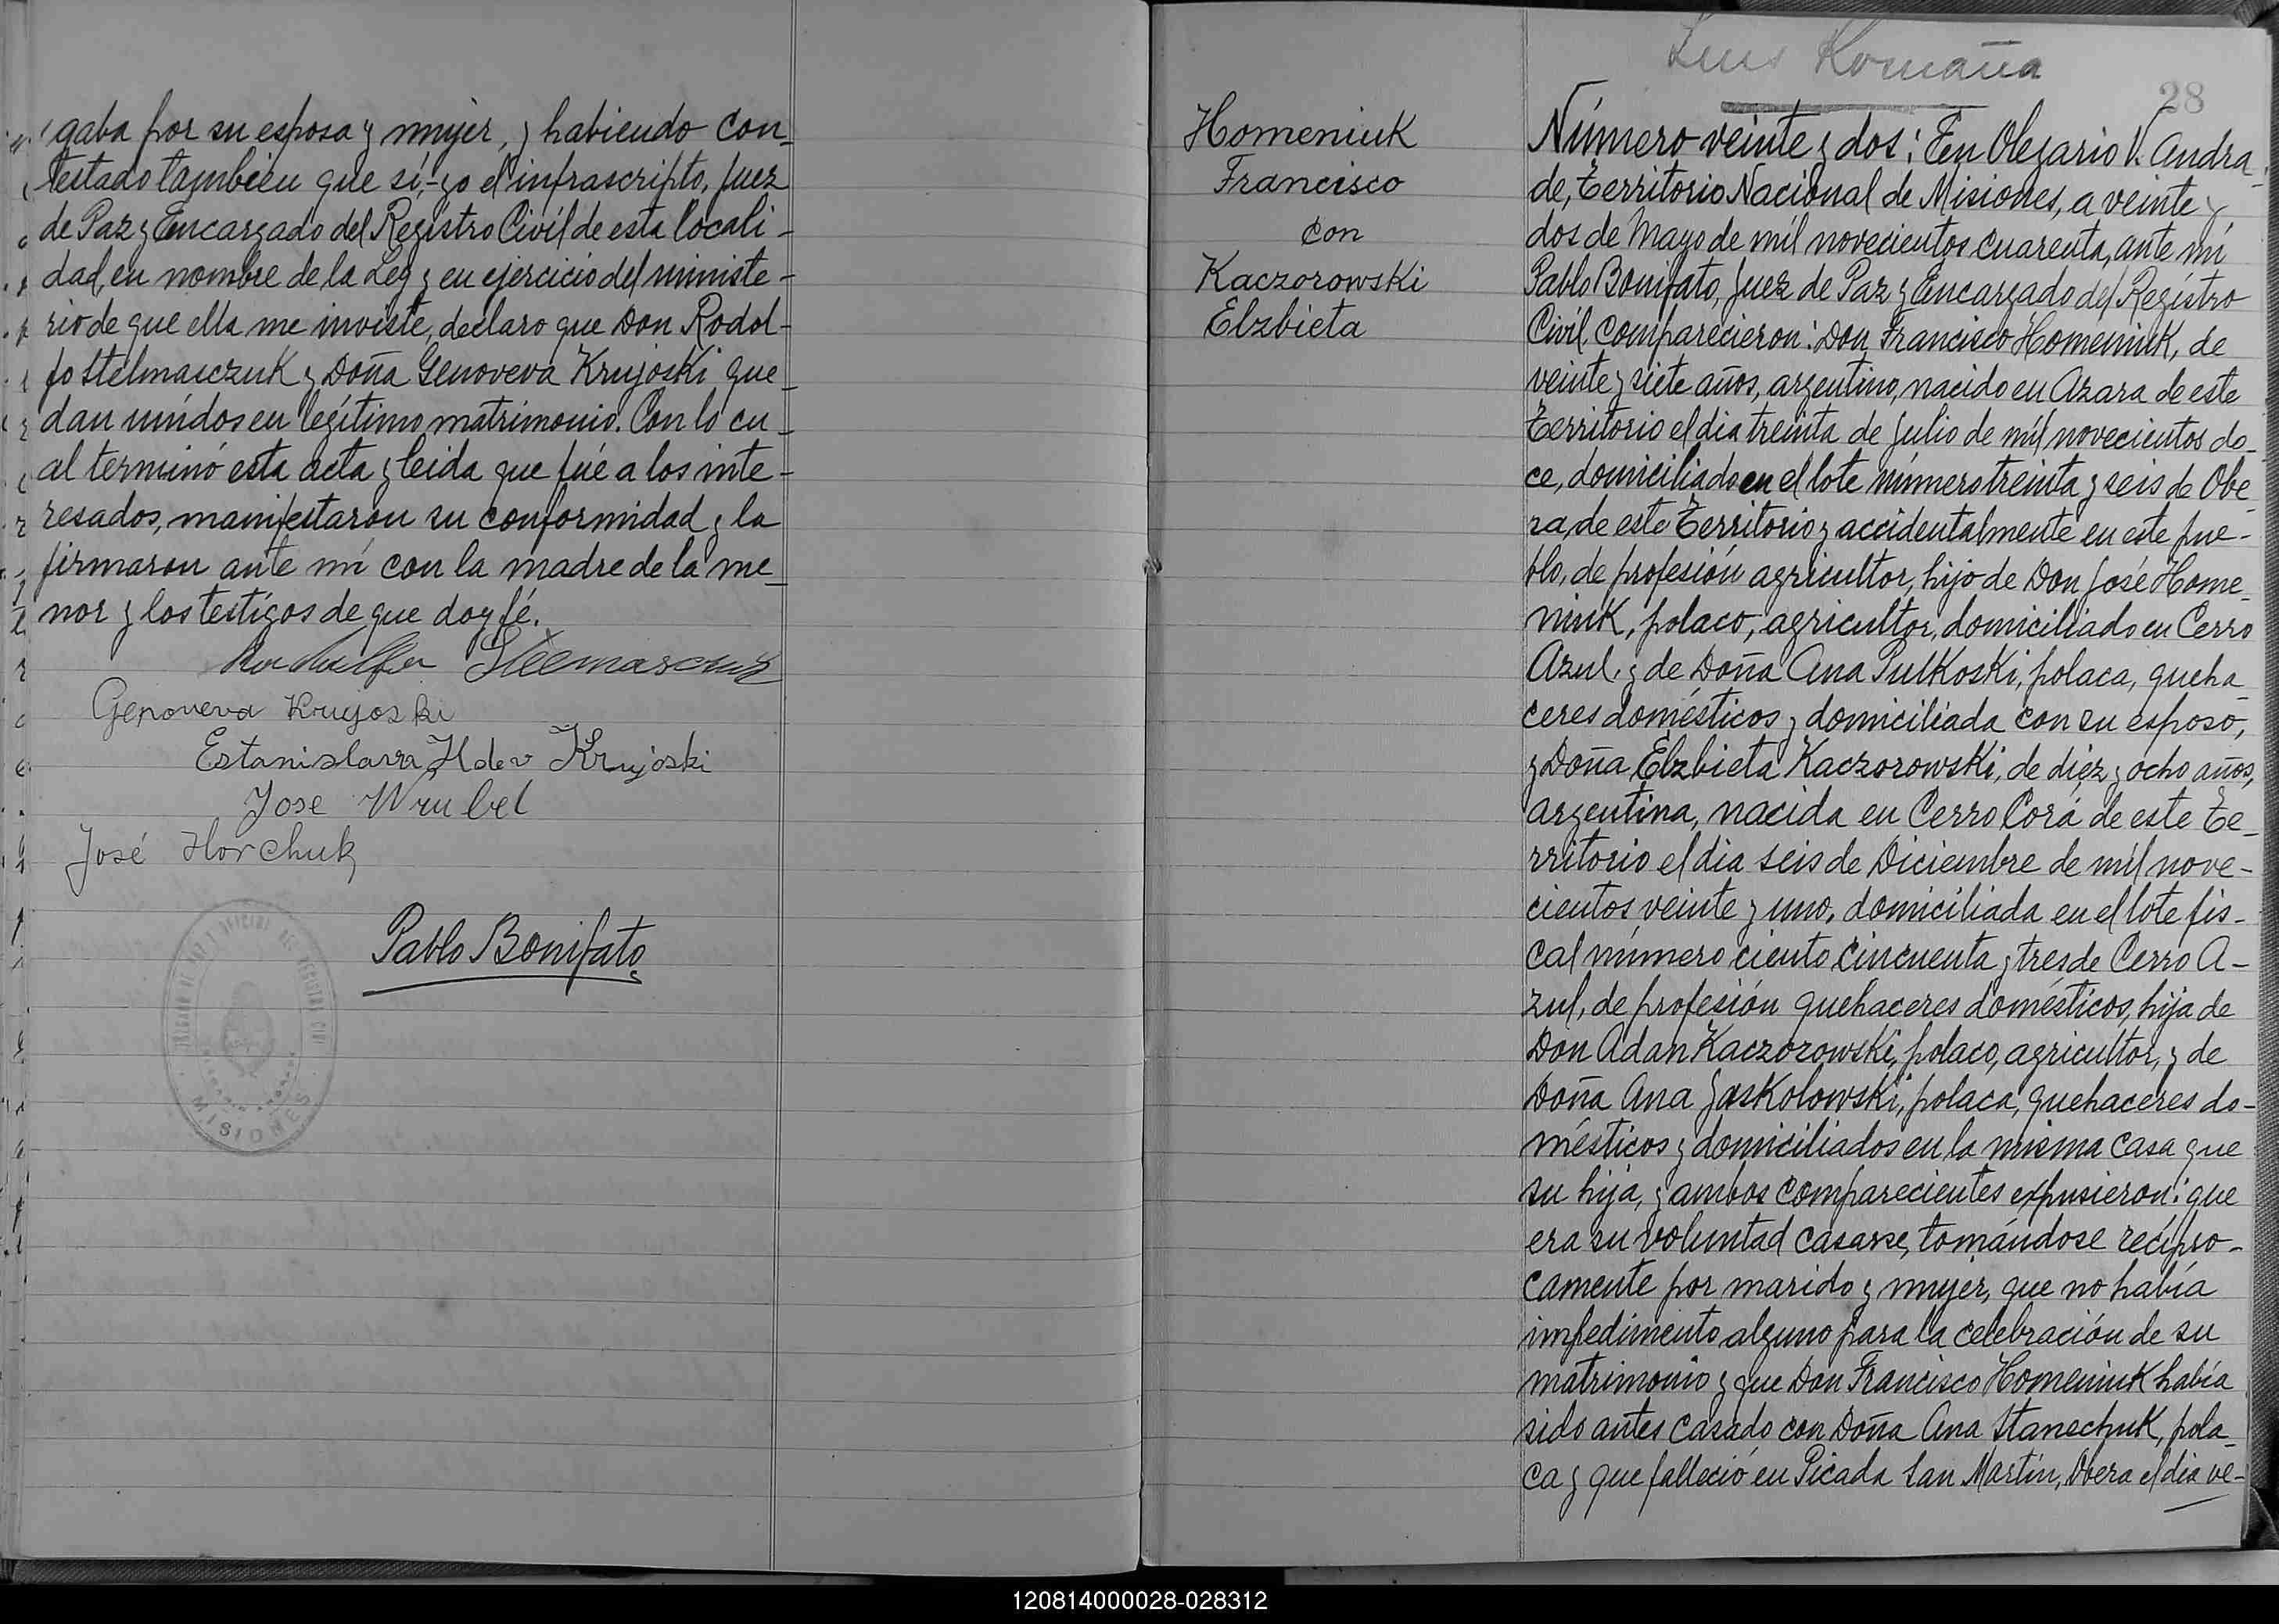 gaba por su esposa y mujer, y habiendo con_
testado también que sí,- yo el infrascripto, Juez
de Paz y Encargado del Registro Civil de esta locali-
dad, en nombre de la Ley y en ejercicio del ministe-
rio de que ella me inviste, declaro que Don Rodol-
fo Stelmasczuk y Doña Genoveva Krujoski que_
dan unidos en legítimo matrimonio. Con lo cu_
al terminó esta acta y leida que fué a los inte-
resados, manifestaron su conformidad y la
firmaron ante mí con la madre de la me_
nor y los testigos de que doy fé.
Genoveva Krujoski
Estanislava H de v Krujoski
Jose Wrubel
José Horchuk
Pablo Bonifato
MISIONES
Luis Romaña
28
Homeniuk
Francisco
con
Kaczorowski
Elzbieta
Número veinte y dos: En Olegario V. Andra_
de, Territorio Nacional de Misiones, a veinte y
dos de Mayo de mil novecientos cuarenta, ante mí
Pablo Bonifato, Juez de Paz y Encargado del Registro
Civil, comparecieron: Don Francisco Homeniuk, de
veinte y siete años, argentino, nacido en Azara de este
Territorio el dia treinta de Julio de mil novecientos do_
ce, domiciliado en el lote número treinta y seis de Obe_
ra, de este Territorio y accidentalmente en este pue-
blo, de profesión agricultor, hijo de Don José Home_
niuk, polaco, agricultor, domiciliado en Cerro
Azul, y de Doña Ana Pulkoski, polaca, queha_
ceres domésticos y domiciliada con su esposo,
y Doña Elzbieta Kaczorowski, de diez y ocho años,
argentina, nacida en Cerro Corá de este Te_
rritorio el dia seis de Diciembre de mil nove-
cientos veinte y uno, domiciliada en el lote fis-
cal número ciento cincuenta y tres de Cerro A-
zul, de profesión quehaceres domésticos, hija de
Don Adan Kaczorowski, polaco, agricultor, y de
Doña Ana Jaskolowski, polaca, quehaceres do-
mésticos y domiciliados en la misma casa que
su hija, y ambos comparecientes expusieron: que
era su voluntad casarse, tomándose recípro-
camente por marido y mujer, que no había
impedimento alguno para la celebración de su
matrimonio y que Don Francisco Homeniuk había
sido antes casado con Doña Ana Stanechuk, pola_
ca y que falleció en Picada San Martín, Obera el dia ve-
120814000028-028312